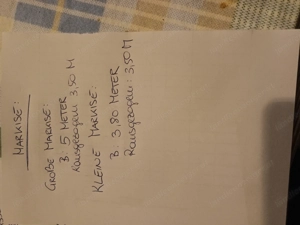 MARKISE:
GROßE MARKISE:
B: 5 METER
Rausgezogen: 3,50 M
KLEINE MARKISE:
B 3,80 METER
Rausgezogen: 3,50 M